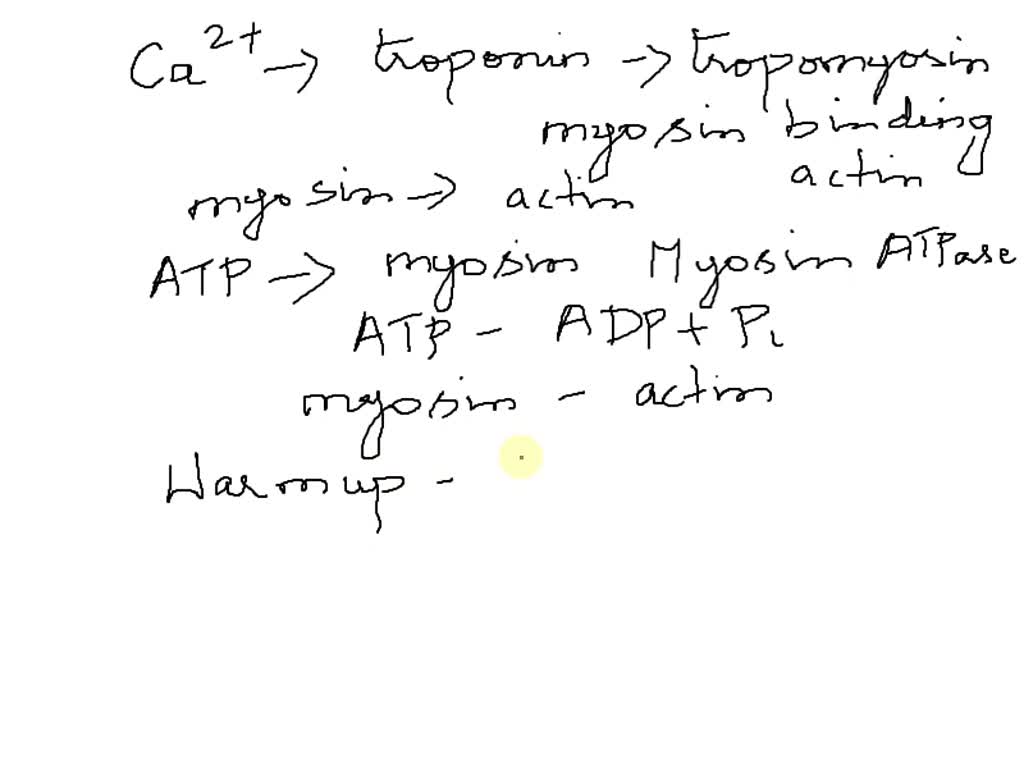 Ca2+ → troponin → tropomyosin
myosin binding
myosin → actin actin
ATP → myosin Myosin ATPase
ATP - ADP + Pi
myosin - actin
Warmup -